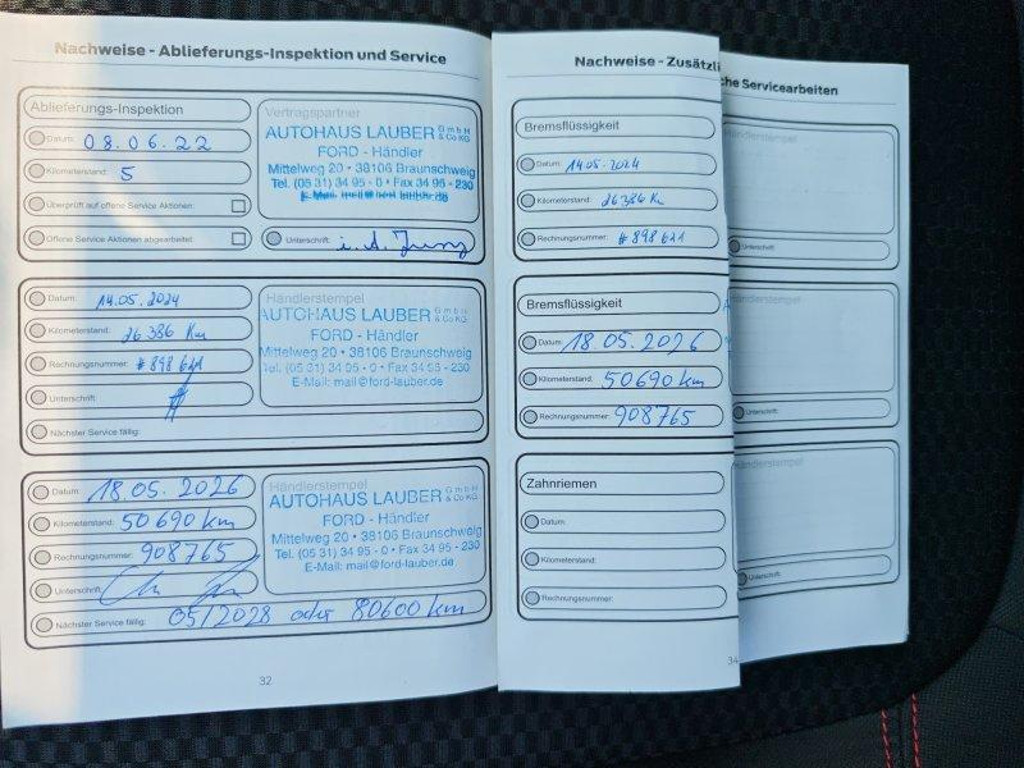 Nachweise - Ablieferungs-Inspektion und Service
Ablieferungs-Inspektion
Datum: 08.06.22
Kilometerstand: 5
Überprüft auf offene Service Aktionen:
Offene Service Aktionen abgearbeitet:
Vertragspartner
AUTOHAUS LAUBER GmbH & Co KG
FORD - Händler
Mittelweg 20 • 38106 Braunschweig
Tel. (05 31) 34 95 - 0 • Fax 34 95 - 230
Unterschrift:
Datum: 14.05.2024
Kilometerstand: 26 386 Km
Rechnungsnummer: #898621
Unterschrift:
Nächster Service fällig:
Händlerstempel
AUTOHAUS LAUBER GmbH & Co KG
FORD - Händler
Mittelweg 20 • 38106 Braunschweig
Tel. (05 31) 34 95 - 0 • Fax 34 95 - 230
E-Mail: mail@ford-lauber.de
Datum: 18.05.2026
Kilometerstand: 50690 km
Rechnungsnummer: 908765
Unterschrift:
Nächster Service fällig: 05/2028 oder 80600 km
Händlerstempel
AUTOHAUS LAUBER GmbH & Co KG
FORD - Händler
Mittelweg 20 • 38106 Braunschweig
Tel. (05 31) 34 95 - 0 • Fax 34 95 - 230
E-Mail: mail@ford-lauber.de
32
Nachweise - Zusätzli
Bremsflüssigkeit
Datum: 14.05.2024
Kilometerstand: 26386 Km
Rechnungsnummer: #898621
Bremsflüssigkeit
Datum: 18.05.2026
Kilometerstand: 50690 km
Rechnungsnummer: 908765
Zahnriemen
Datum:
Kilometerstand:
Rechnungsnummer:
34
che Servicearbeiten
Händlerstempel
Unterschrift:
Händlerstempel
Unterschrift:
Händlerstempel
Unterschrift: